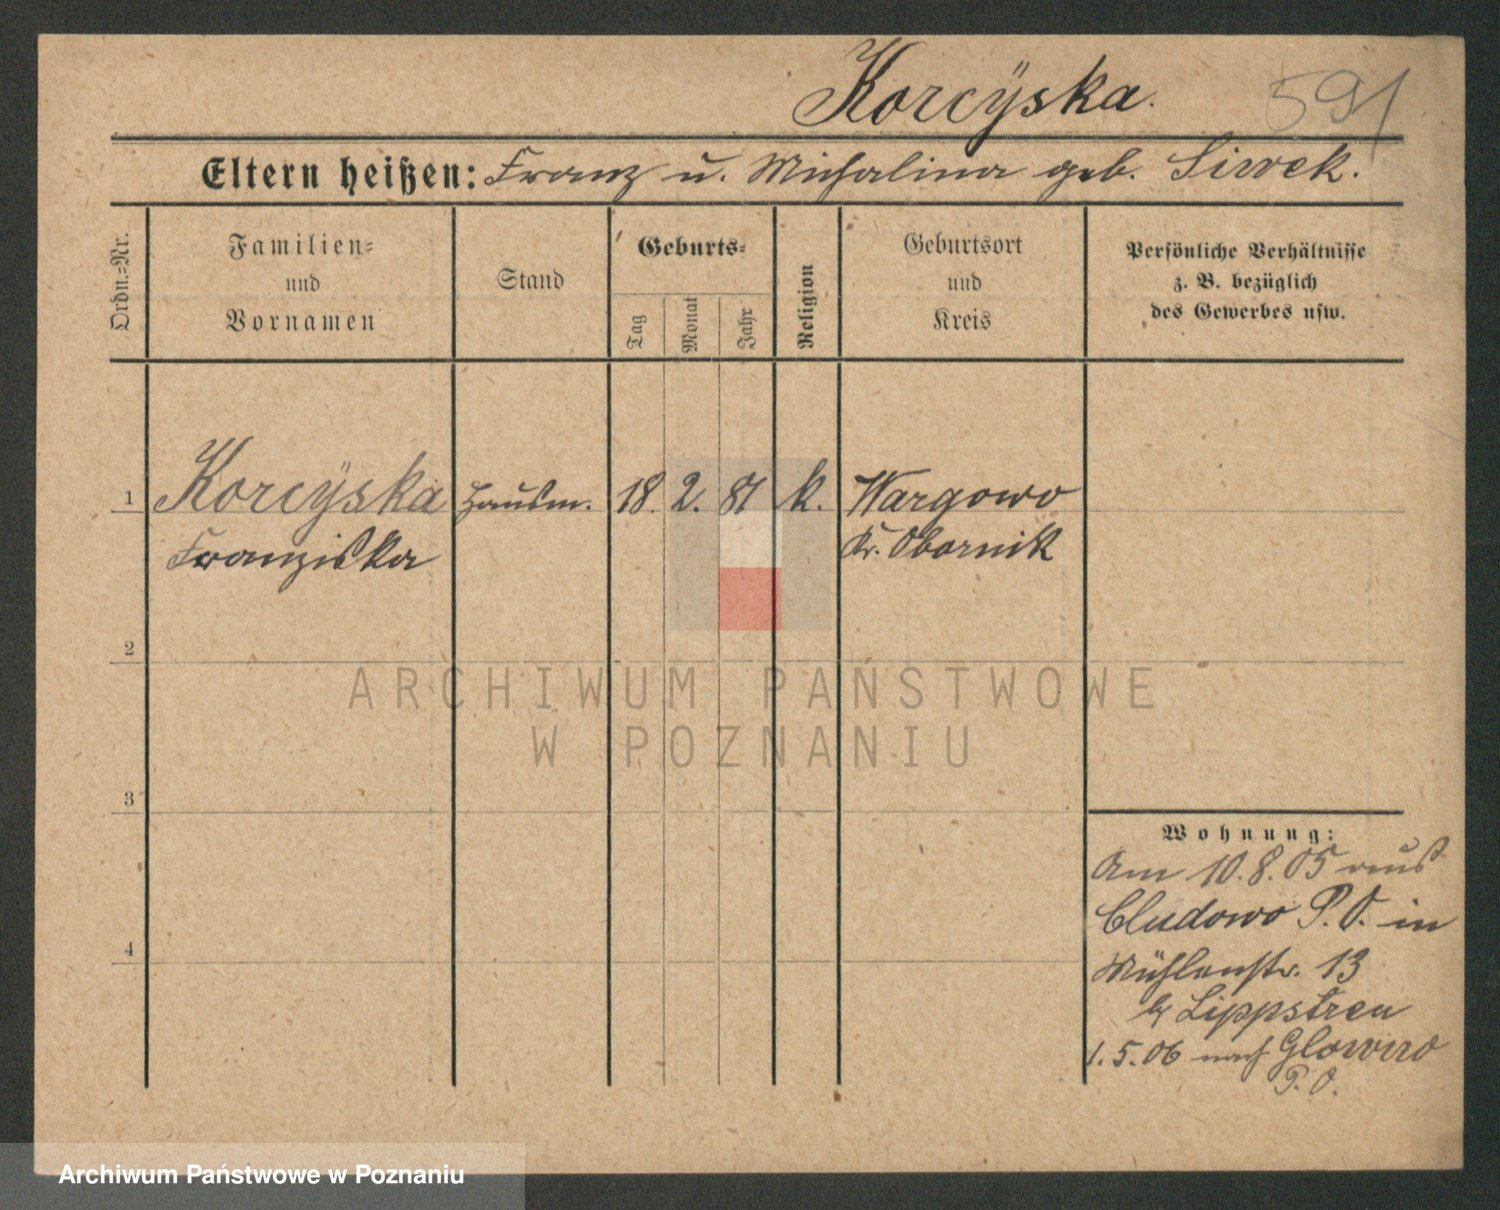 Korcÿska.
591
Eltern heißen: Franz u. Michalina geb. Siwek.
Ordn.=Nr.
Familien=
und
Vornamen
Stand
Geburts=
Tag
Monat
Jahr
Religion
Geburtsort
und
Kreis
Persönliche Verhältnisse
z. B. bezüglich
des Gewerbes usw.
1 Korcÿska Hausm. 18. 2. 81 k. Wargowo
Franziska Kr. Obornik
2
ARCHIWUM PAŃSTWOWE
W POZNANIU
3
Wohnung:
Am 10.8.05 aus
Chludowo P.O. in
Mühlenstr. 13
b/ Lippstreu
4
1.5.06 nach Glowno
P.O.
Archiwum Państwowe w Poznaniu